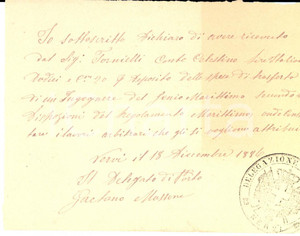 Io sottoscritto dichiaro di avere ricevuto
dal Sig. Tornielli Conte Celestino Lire Italiane
dodici e C.mi 20 deposito delle spese di trasferta
di un Ingegnere del Genio Marittimo secondo
disposizioni del Regolamento Marittimo
lavori arbitrari che gli si vogliono attribuire
Nervi il 18 Dicembre 1886
Il Delegato di Porto
Gaetano
DELEGAZIONE DI